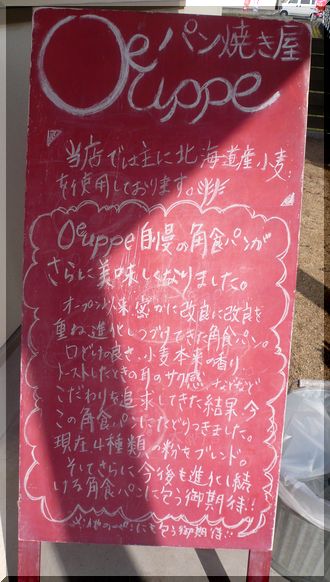 パン焼き屋
Oeuppe
当店では主に北海道産小麦
を使用しております。
Oeuppe自慢の角食パンが
さらに美味しくなりました。
オープン以来、密かに改良に改良を
重ね、進化しつづけてきた角食パン。
口どけの良さ、小麦本来の香り
トーストしたときの耳のサク感…などなど
こだわりを追求してきた結果、今
この角食パンにたどりつきました。
現在、4種類の粉をブレンド。
そしてさらに今後も進化し続
ける角食パンに乞う御期待!!
その他のパンにも乞う御期待…